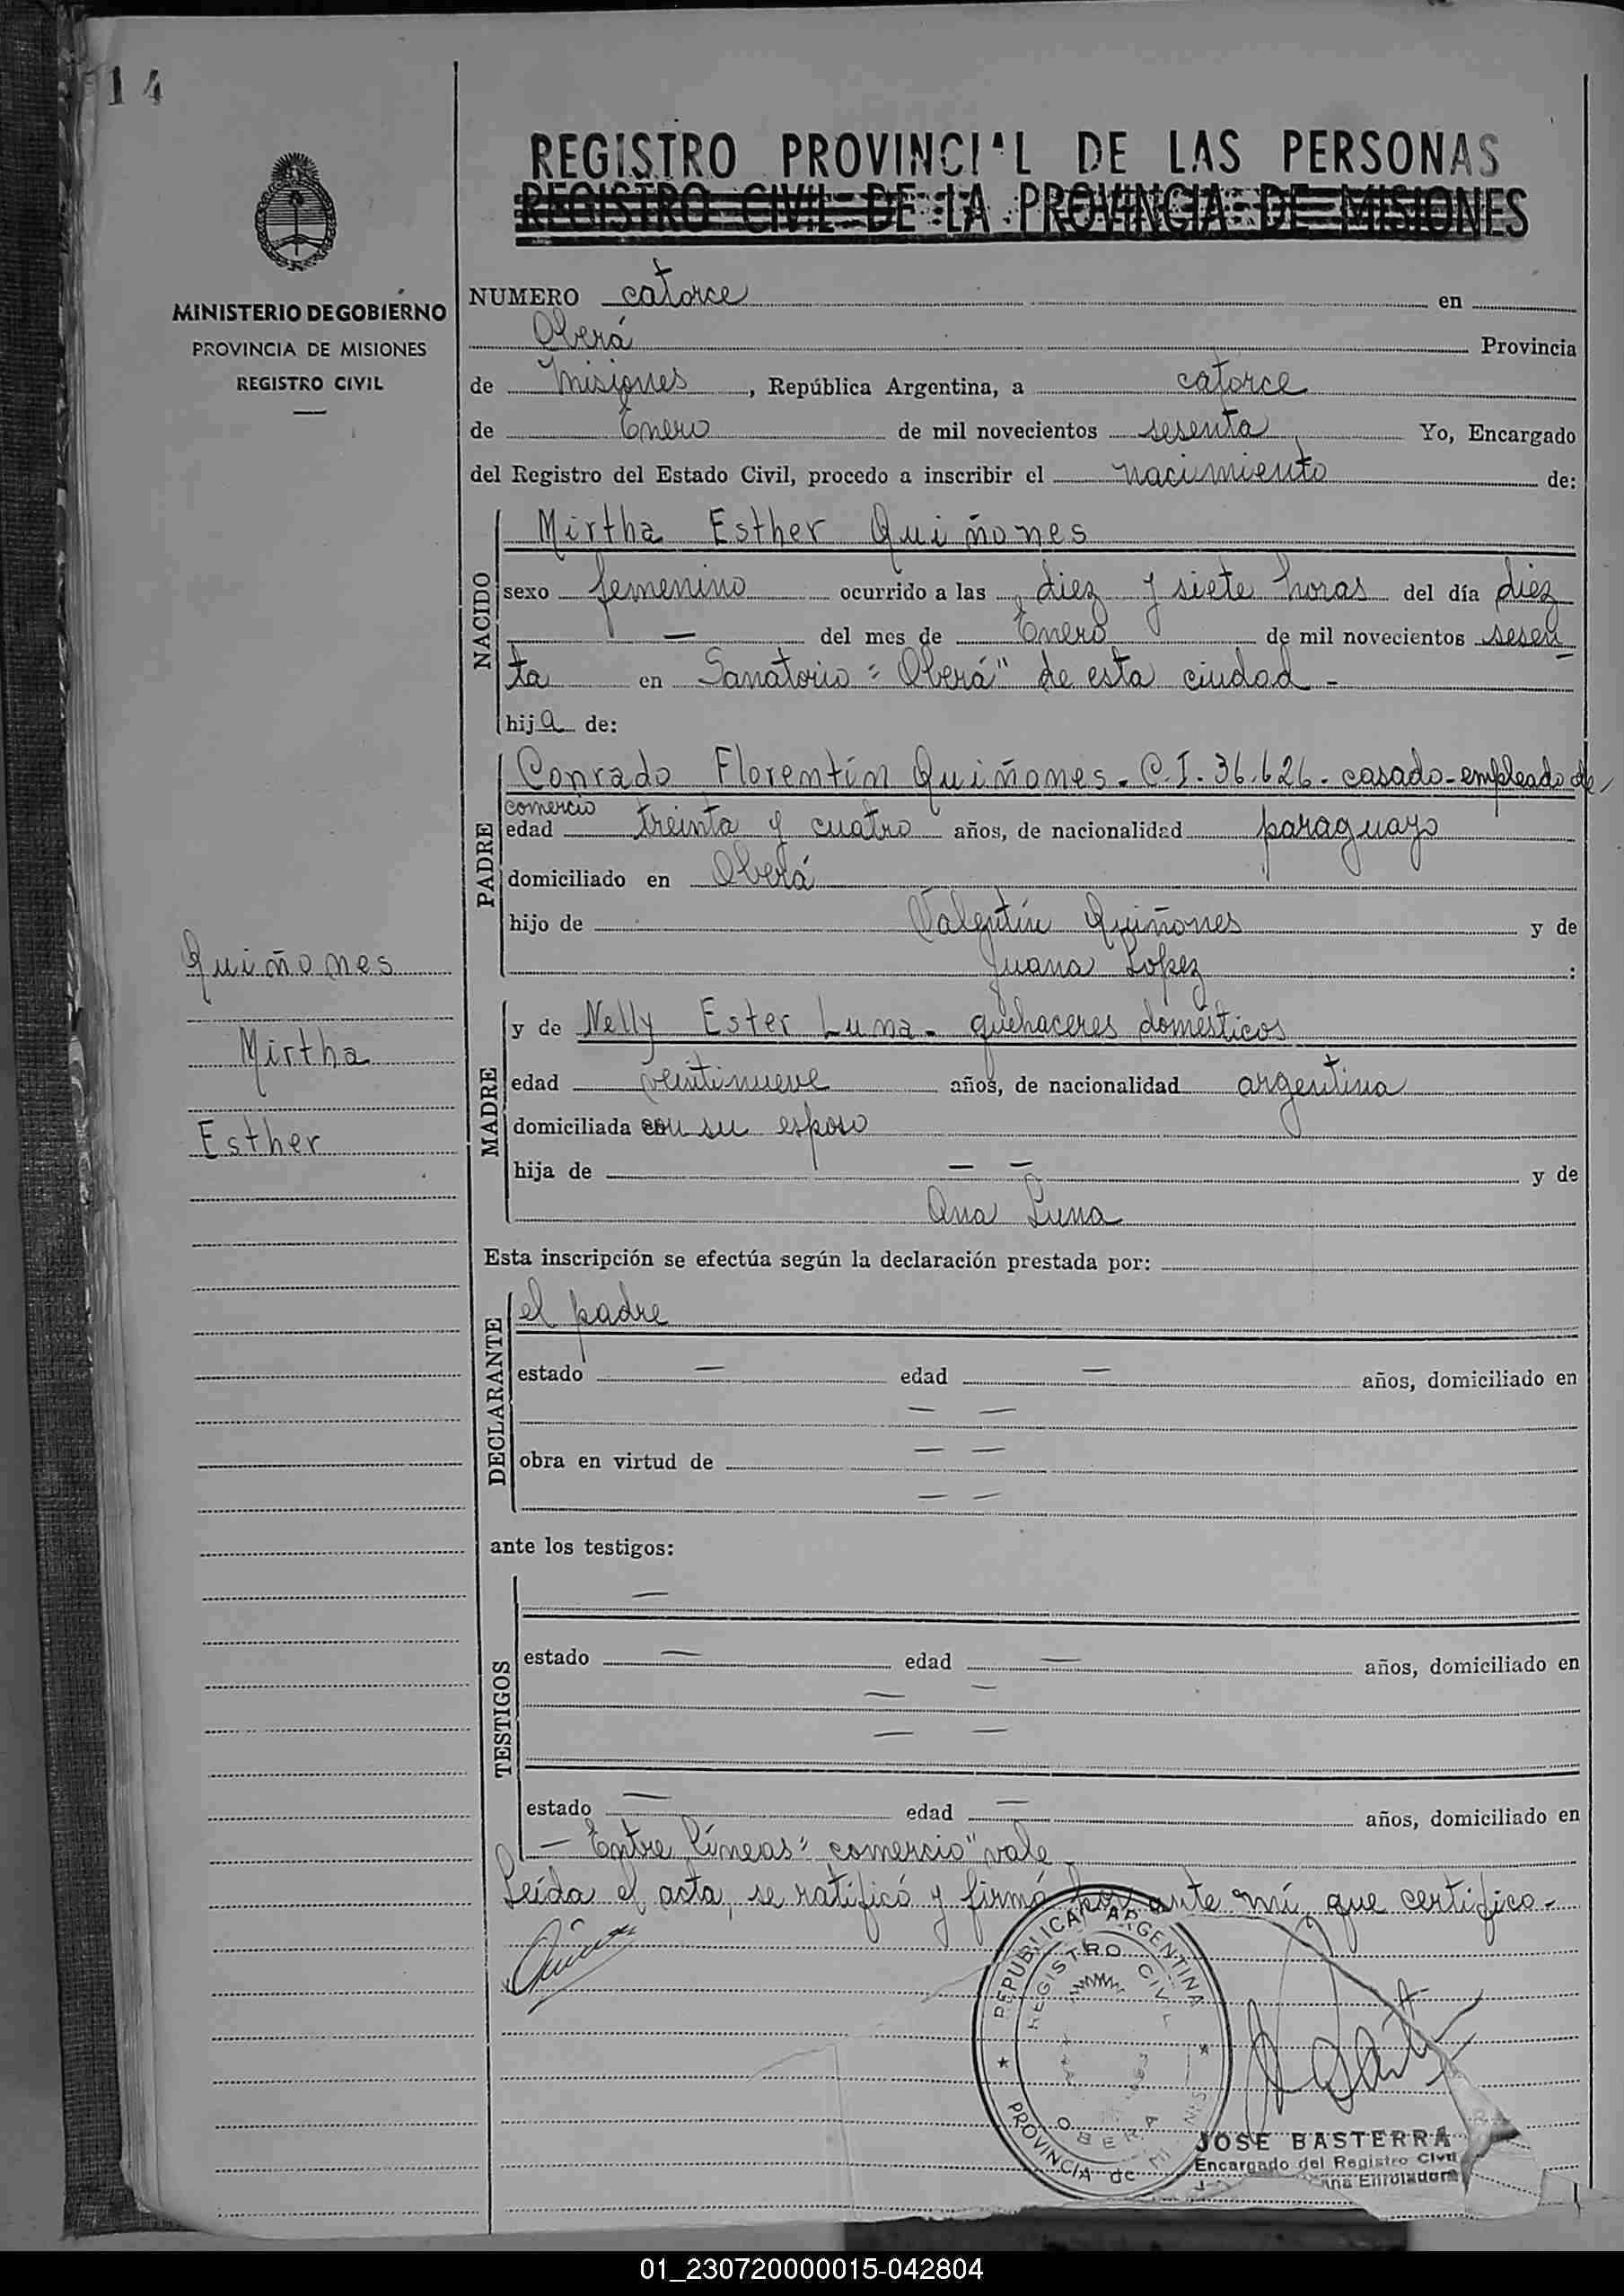 14
REGISTRO PROVINCIAL DE LAS PERSONAS
REGISTRO CIVIL DE LA PROVINCIA DE MISIONES
MINISTERIO DE GOBIERNO
PROVINCIA DE MISIONES
REGISTRO CIVIL
NUMERO catorce en
Oberá Provincia
de Misiones, República Argentina, a catorce
de Enero de mil novecientos sesenta, Yo, Encargado
del Registro del Estado Civil, procedo a inscribir el nacimiento de:
NACIDO
Mirtha Esther Quiñones
sexo femenino ocurrido a las diez y siete horas del día diez
— del mes de Enero de mil novecientos sesen
ta en Sanatorio "Oberá" de esta ciudad -
hija de:
PADRE
Conrado Florentín Quiñones - C.I. 36.626 - casado - empleado de
comercio
edad treinta y cuatro años, de nacionalidad paraguayo
domiciliado en Oberá
hijo de Valentín Quiñones y de
Juana Lopez :
Quiñones
Mirtha
Esther
MADRE
y de Nelly Ester Luna - quehaceres domésticos
edad veintinueve años, de nacionalidad argentina
domiciliada con su esposo
hija de — — y de
Ana Luna
Esta inscripción se efectúa según la declaración prestada por:
DECLARANTE
el padre
estado — edad — años, domiciliado en
— —
obra en virtud de — —
— —
ante los testigos:
TESTIGOS
—
estado — edad — años, domiciliado en
— —
— —
estado — edad — años, domiciliado en
— Entre líneas "comercio" vale
Leída el acta, se ratificó y firmó por ante mí, que certifico -
REPUBLICA ARGENTINA
REGISTRO CIVIL
OBERA
PROVINCIA de MISIONES
JOSE BASTERRA
Encargado del Registro Civil
Enroladora
01_230720000015-042804